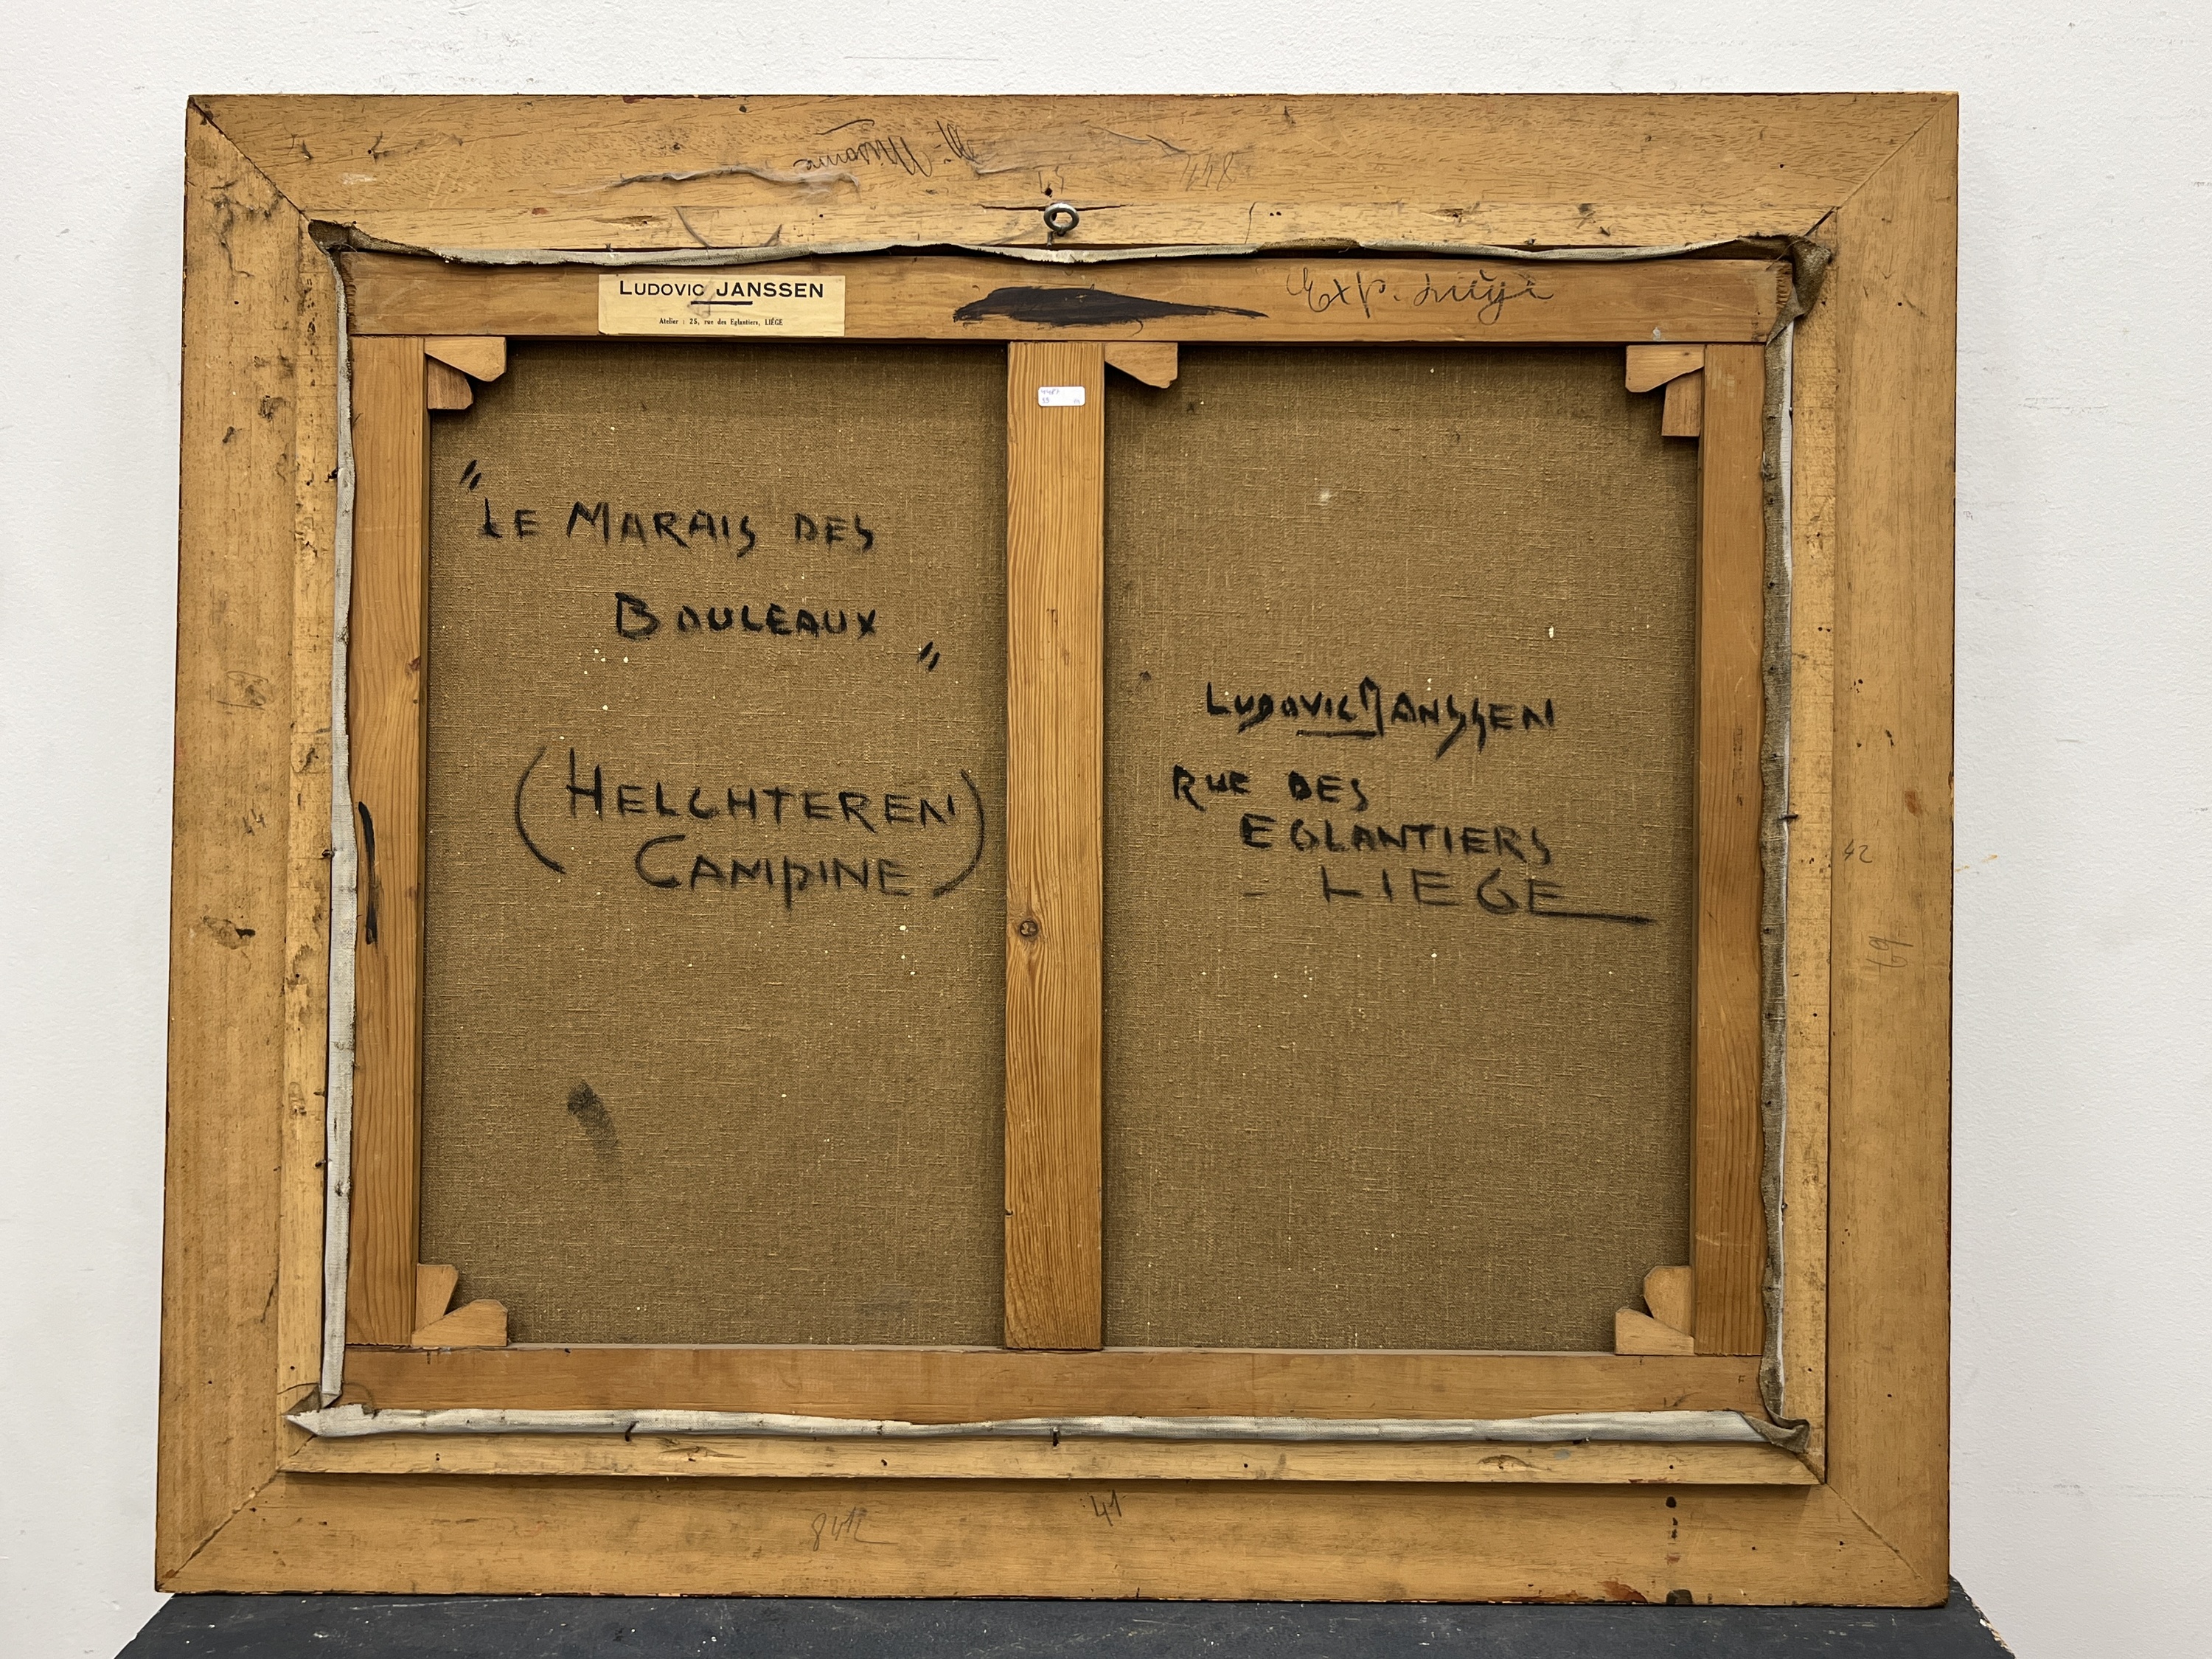 LUDOVIC JANSSEN
Atelier : 25, rue des Eglantiers, LIÉGE
Exp.
"LE MARAIS DES
BOULEAUX"
(HELCHTEREN
CAMPINE)
LUDOVIC JANSSEN
RUE DES
EGLANTIERS
- LIEGE
42
41